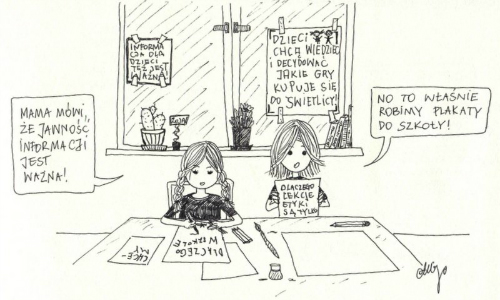 INFORMA
CJA DLA
DZIECI
TEŻ JEST
WAŻNA
DZIECI
CHCĄ WIEDZIEĆ
I DECYDOWAĆ
JAKIE GRY
KUPUJE SIĘ
DO ŚWIETLICY!
MAMA MÓWI,
ŻE "JAWNOŚĆ"
INFORMACJI
JEST
WAŻNA!
NO TO WŁAŚNIE
ROBIMY PLAKATY
DO SZKOŁY!
ZUZIA
DLACZEGO
LEKCJE
ETYKI
SĄ TYLKO
CHCE-
MY
DLACZEGO
W SZKOLE